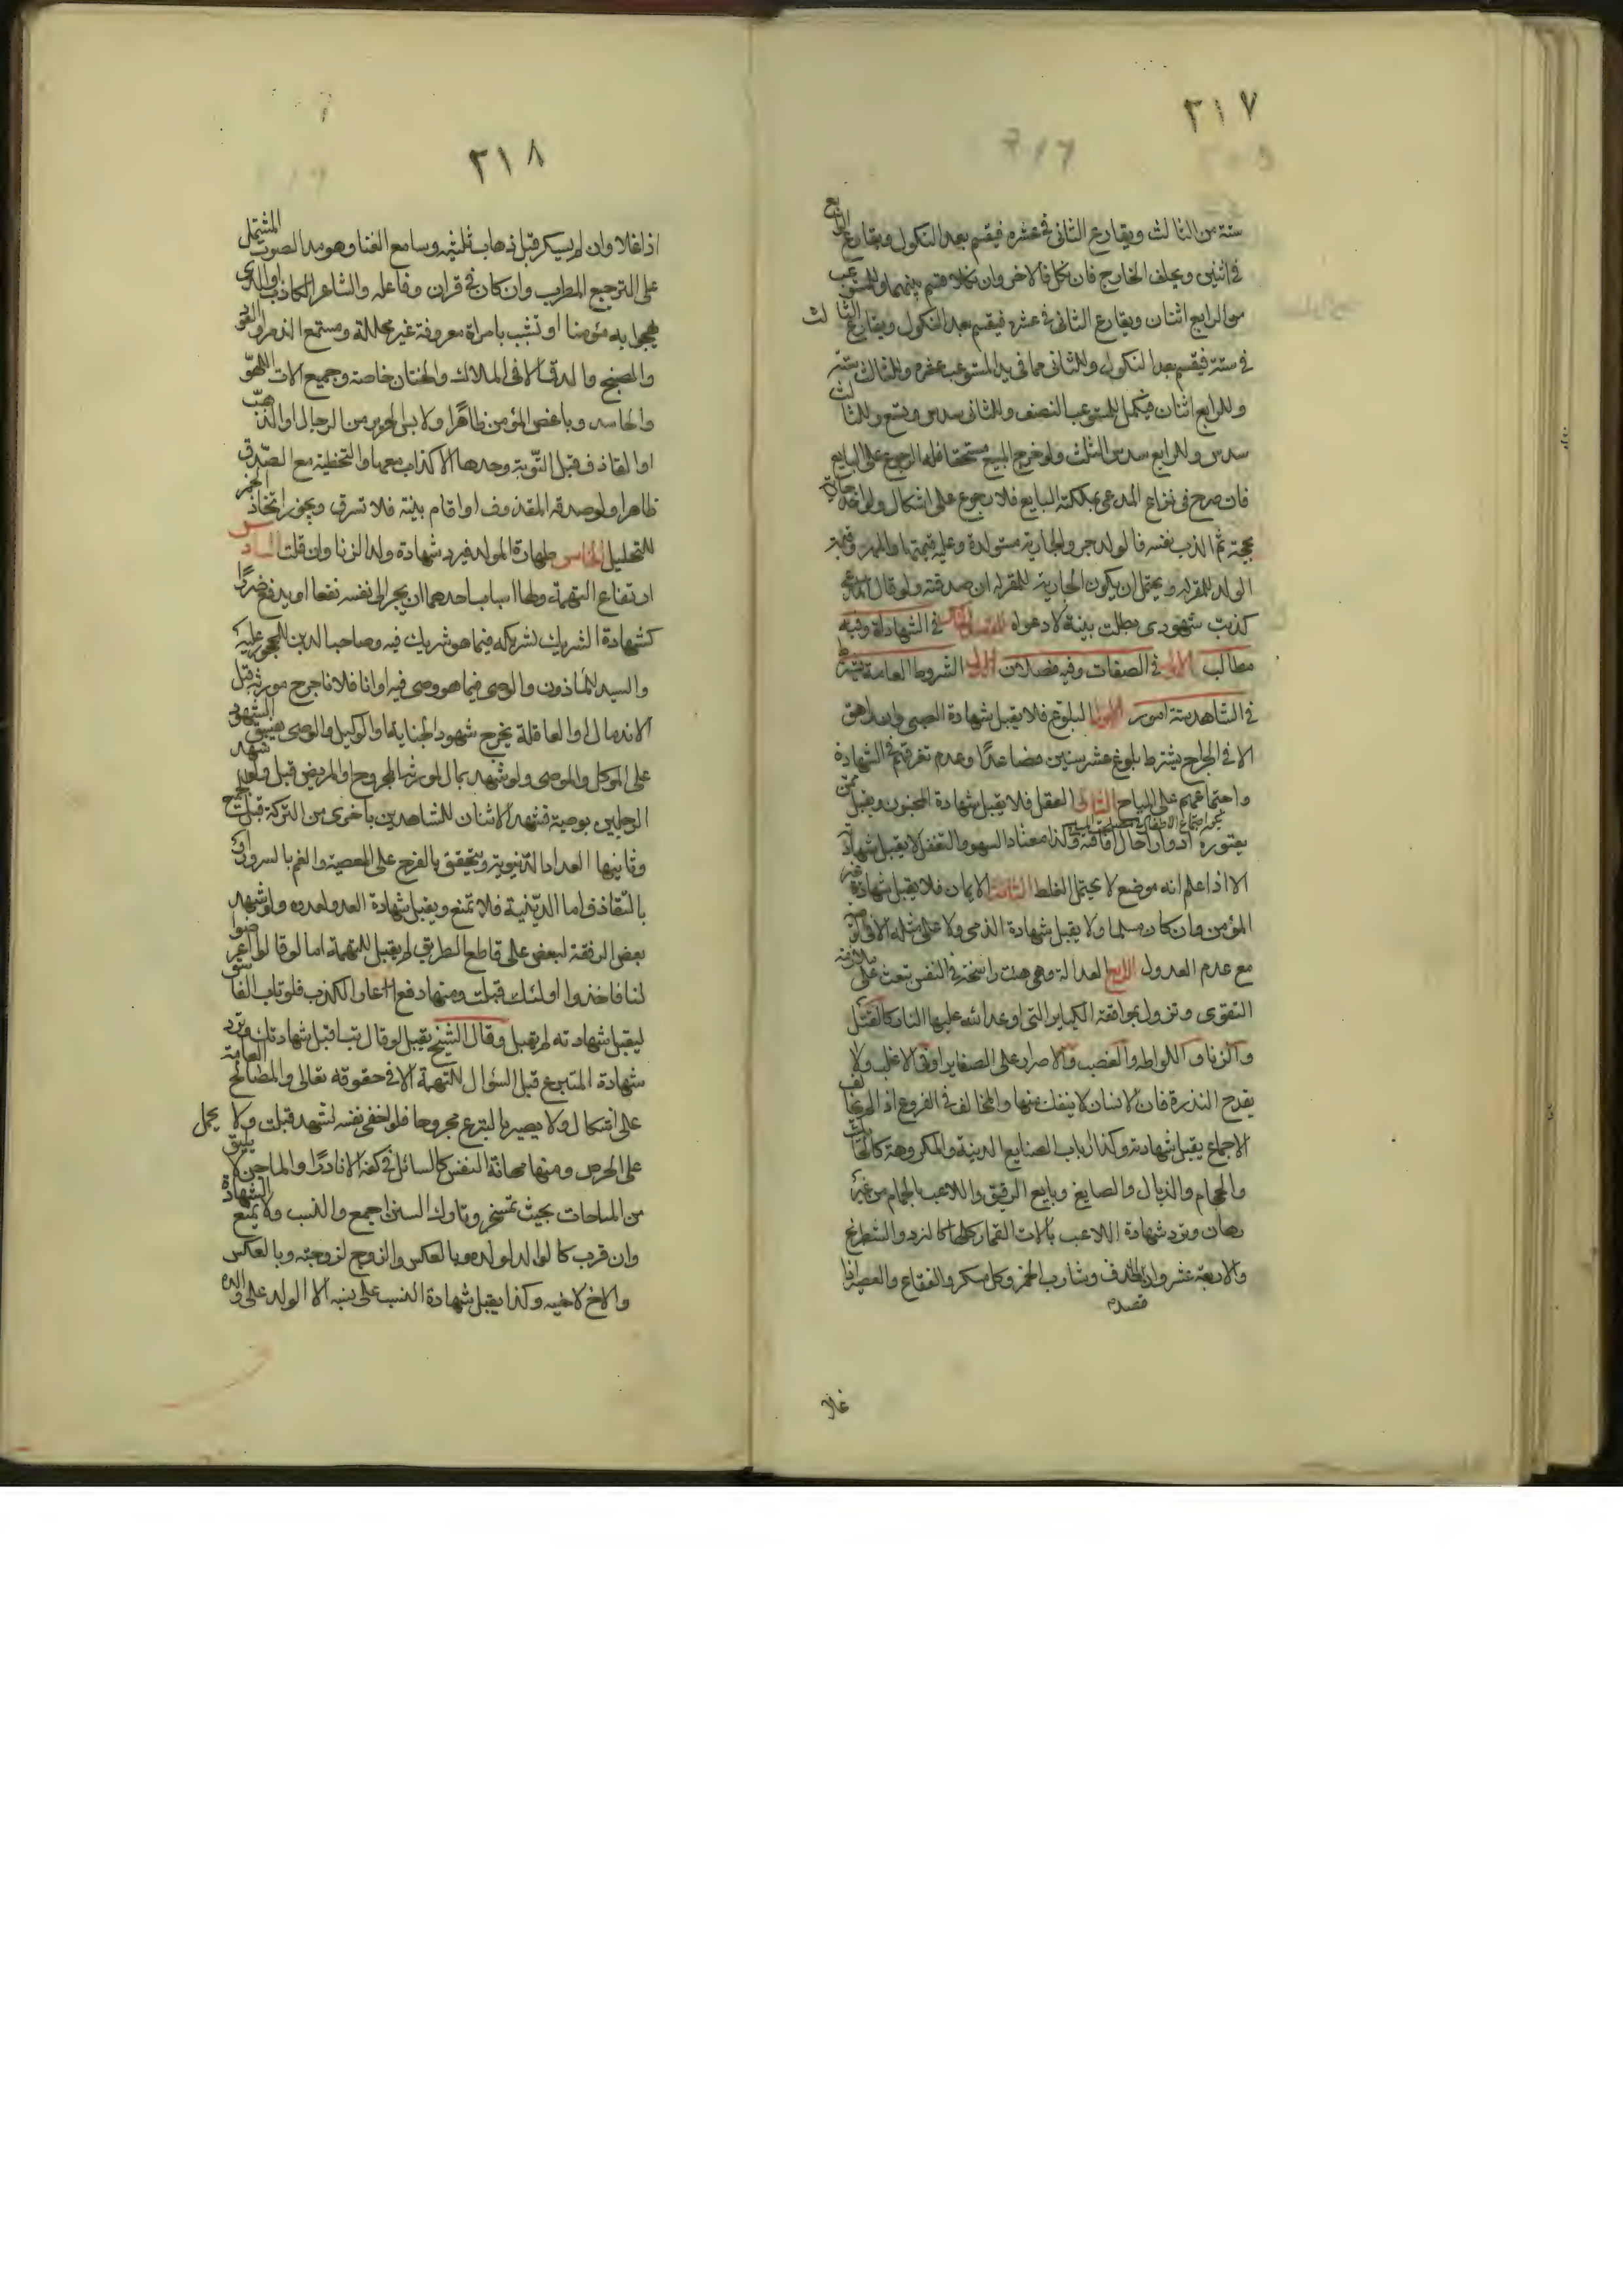 ٢١٧
ستة من الثالث ويقارع الثانى فى عشرة فيقسم بعد النكول ويقارع الرابع
فى اثنين ويحلف الخارج فان نكل فالاخر وان نكلا قسم بينهما وللمستوعب
من الرابع اثنان ويقارع الثانى فى عشرة فيقسم بعد النكول ويقارع الثالث
فى ستة فيقسم بعد النكول وللثانى مما فى يد المستوعب عشرة وللثالث ستة
وللرابع اثنان فيكمل للمستوعب النصف وللثانى سدس وتسع وللثالث
سدس وللرابع سدس الثلث ولو خرج المبيع مستحقا فله الرجوع على البايع
فان صرح فى نزاع المدعى بملكية البايع فلا رجوع على اشكال ولو اخذ جارية
بحجة ثم اكذب نفسه فالولد حر والجارية مستولدة وعليه قيمتها والمهر وقيمة
الولد للمقر له ويحتمل ان يكون الجارية للمقر له ان صدقته ولو قال المدعى
كذبت شهودى بطلت بينته لا دعواه المقصد فى الشهادة وفيه
مطالب الاول فى الصفات وفيه فصلان الاول الشروط العامة يشترط
فى الشاهد ستة امور الاول البلوغ فلا يقبل شهادة الصبى وان راهق
الا فى الجراح بشرط بلوغ عشر سنين فصاعدا وعدم تفرقهم فى الشهادة
واجتماعهم على المباح الثانى العقل فلا يقبل شهادة المجنون ويقبل ممن
يعتوره ادوارا حال افاقته وكذا معتاد السهو والتغفل لا يقبل شهادته
الا اذا علم انه موضع لا يحتمل الغلط الثالث الايمان فلا يقبل شهادة غير
المؤمن وان كان مسلما ولا يقبل شهادة الذمى ولا على مثله الا فى الوصية
مع عدم العدول الرابع العدالة وهى هيئة راسخة فى النفس تبعث على ملازمة
التقوى وتزول بمواقعة الكباير التى اوعد الله عليها النار كالقتل
والزنا واللواط والغصب والاصرار على الصغاير او فى الاغلب ولا
يقدح الندرة فان الانسان لا ينفك منها والمخالف فى الفروع اذا لم يخالف
الاجماع يقبل شهادته وكذا ارباب الصنايع الدنية والمكروهة كالحائك
والحجام والزبال والصايغ وبايع الرقيق واللاعب بالحمام من غير
رهان وترد شهادة اللاعب بالات القمار كلها كالنرد والشطرنج
والاربعة عشر وان قصد الحذف وشارب الخمر وكل مسكر والفقاع والعصير اذا
غلا
٢١٨
اذا غلا وان لم يسكر قبل ذهاب ثلثيه وسامع الغنا وهو مد الصوت المشتمل
على الترجيع المطرب وان كان فى قران وفاعله والشاعر الكاذب او الذى
يهجوا به مؤمنا او تشبب بامراة معروفة غير محللة ومستمع الزمر والعود
والصنج والدف الا فى الملاك والختان خاصة وجميع الات اللهو
والحاسد وباغض المؤمن ظاهرا ولابس الحرير من الرجال او الذهب
او القاذف قبل التوبة وحدها الاكذاب معها والتخطية مع الصدق
ظاهرا ولو صدقه المقذوف او اقام بينة فلا تسرق ويجوز اتخاذ الخمر
للتحليل الخامس طهارة المولد فيرد شهادة ولد الزنا وان قلت السادس
ارتفاع التهمة ولها اسباب احدها ان يجر الى نفسه نفعا او يدفع ضررا
كشهادة الشريك لشريكه فيما هو شريك فيه وصاحب الدين للمحجور عليه
والسيد للماذون والوصى فيما هو وصى فيه او ان فلانا جرح مورثه قبل
الاندمال او العاقلة بجرح شهود الجناية او الوكيل والوصى بفسق الشهود
على الموكل والموصى ولو شهد بمال لمورثه المجروح او المريض قبل ولو شهد
الرجلين بوصية فشهد الاثنان للشاهدين باخرى من التركة قبلت الجميع
وثانيها العداوة الدنيوية ويتحقق بالفرح على المعصية والغم بالسرور او
بالتقاذف اما الدينية فلا تمنع ويقبل شهادة العدو لعدوه ولو شهد
بعض الرفقة لبعض على قاطع الطريق لم يقبل للتهمة اما لو قالوا عرضوا
لنا فاخذوا اولئك قبلت ومنها دفع عار الكذب فلو تاب الفاسق
ليقبل شهادته لم يقبل وقال الشيخ يقبل لو قال تب اقبل شهادتك وترد
شهادة المتبرع قبل السؤال للتهمة الا فى حقوقه تعالى والمصالح العامة
على اشكال ولا يصير بالتبرع مجروحا فلو اخفى نفسه لشهد قبلت ولا يحمل
على الحرص ومنها مهانة النفس كالسائل فى كفه الا نادرا والماجن لا يليق
من المباحات بحيث تمسخر وتاول السنن اجمع والنسب ولا يمنع الشهادة
وان قرب كالوالد لولده وبالعكس والزوج لزوجته وبالعكس
والاخ لاخيه وكذا يقبل شهادة النسب على نسبه الا الولد على والده